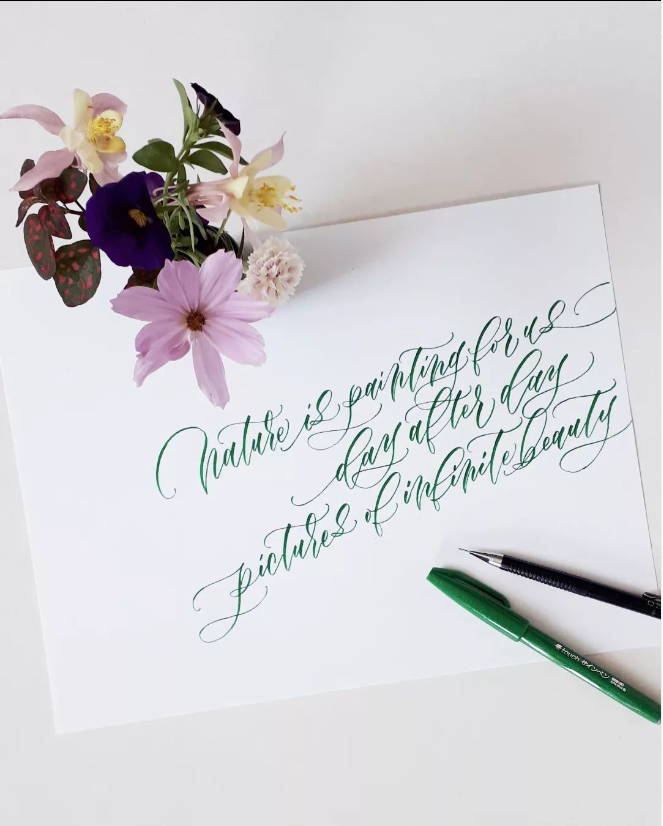 Nature is painting for us
day after day
pictures of infinite beauty
touch サインペン